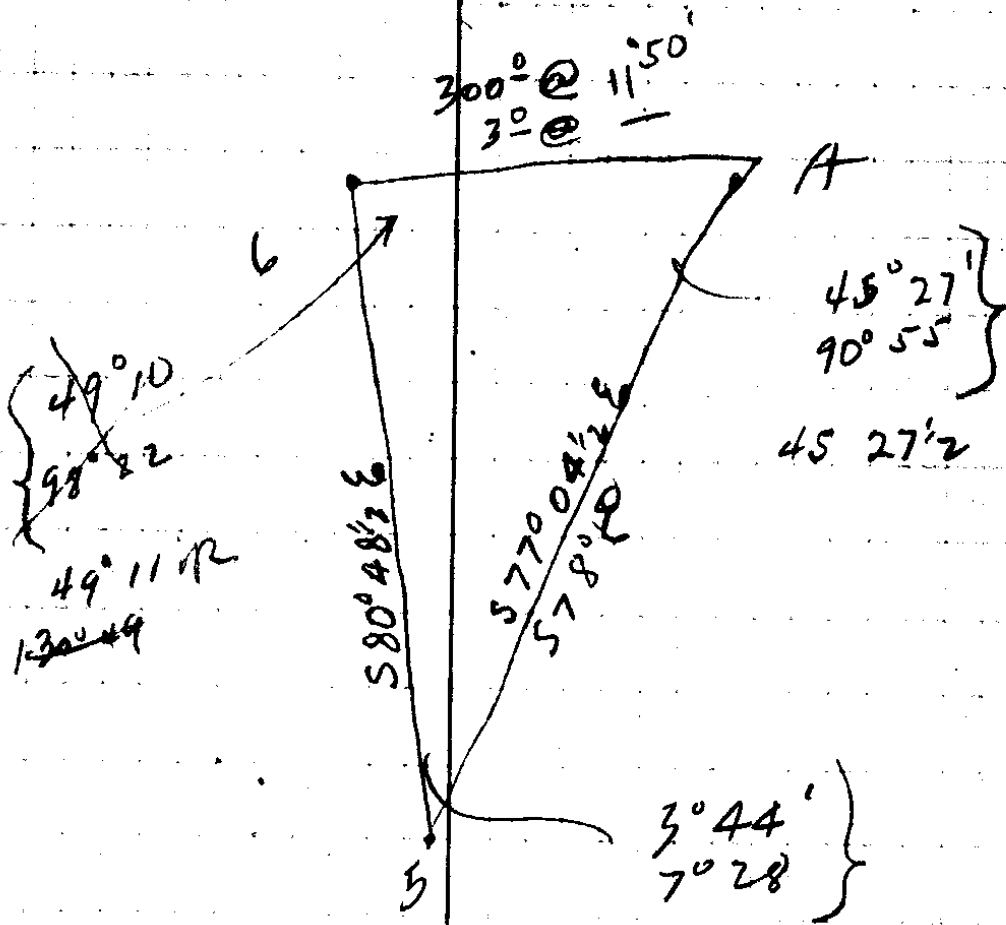 300° @ 11°50'
3° @
A
6
45°27'
90°55
45 27 1/2
49°10
98°82
49°11
S80°48 1/2 E
S77°04 1/2 E
S78°E
3°44'
7°28
5